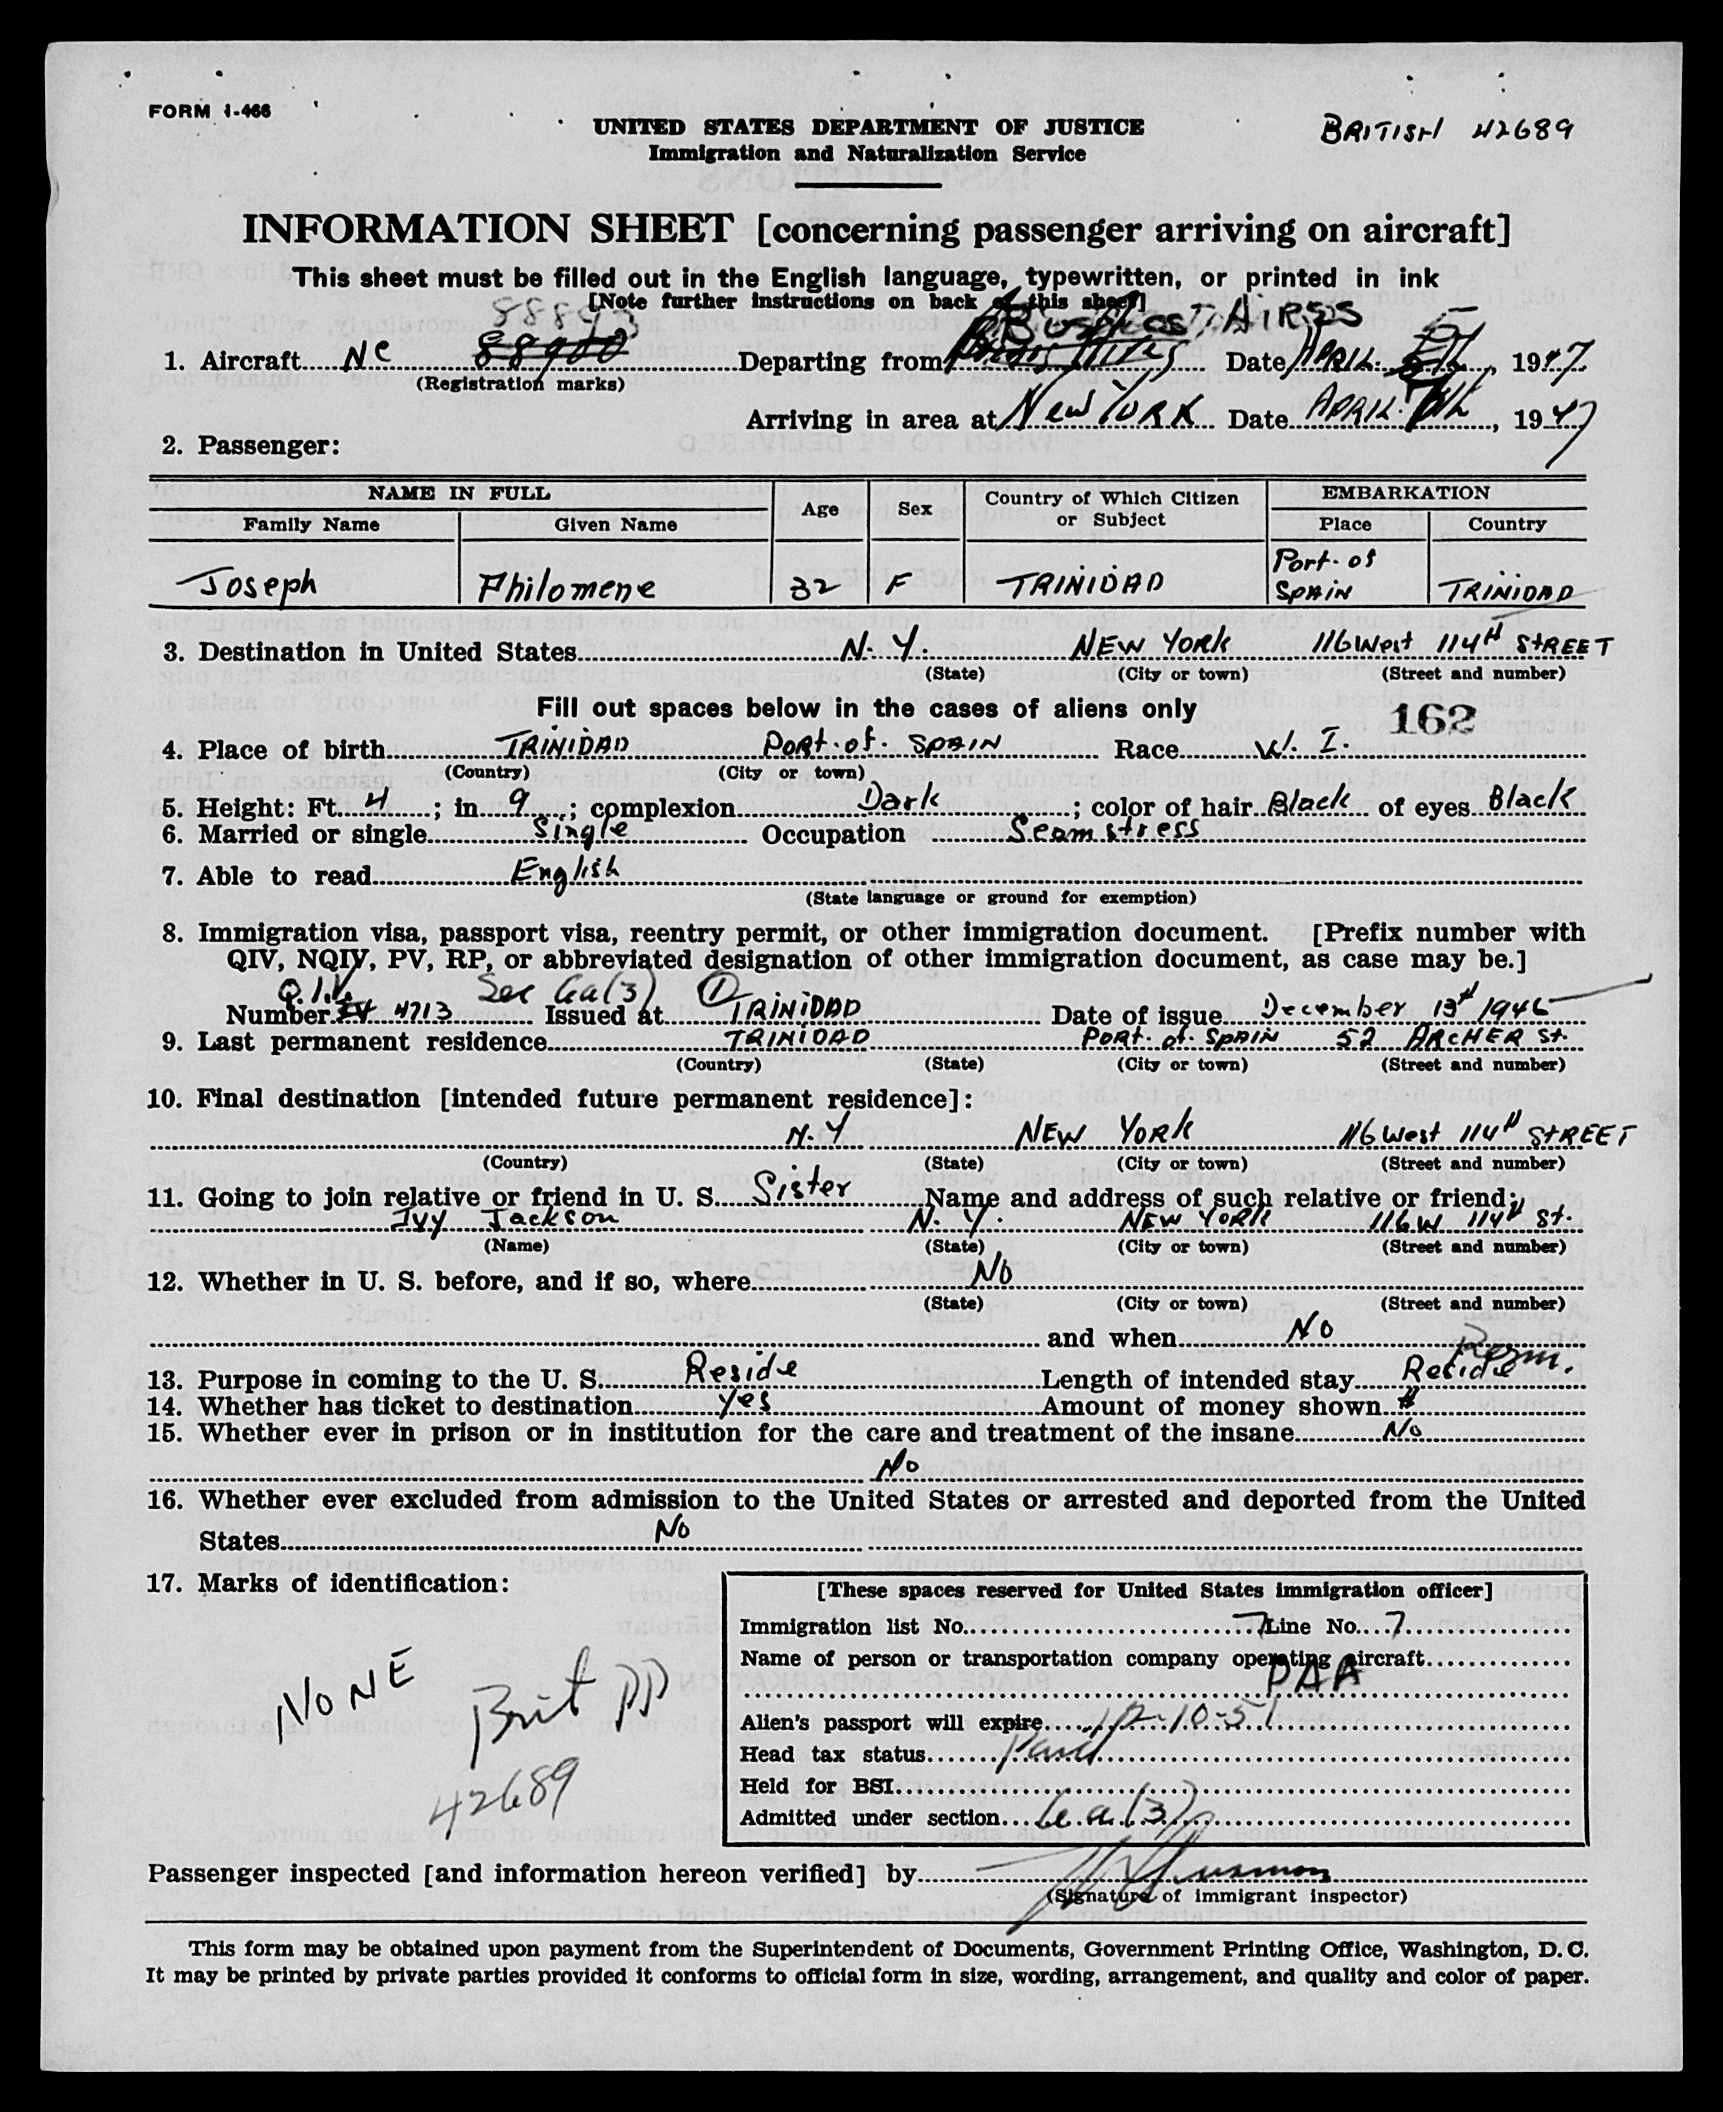 FORM I-466
UNITED STATES DEPARTMENT OF JUSTICE
BRITISH 42689
Immigration and Naturalization Service
INFORMATION SHEET [concerning passenger arriving on aircraft]
This sheet must be filled out in the English language, typewritten, or printed in ink
[Note further instructions on back of this sheet]
88893
1. Aircraft NC 88900 Departing from AIRES Date APRIL 5th, 1947
(Registration marks)
Arriving in area at New YORK Date APRIL 7th, 1947
2. Passenger:
NAME IN FULL Age Sex Country of Which Citizen or Subject EMBARKATION
Family Name Given Name Place Country
Joseph Philomene 32 F TRINIDAD Port-of SPAIN TRINIDAD
3. Destination in United States N. Y. NEW YORK 116 West 114th STREET
(State) (City or town) (Street and number)
Fill out spaces below in the cases of aliens only 162
4. Place of birth TRINIDAD PORT. of. SPAIN Race W. I.
(Country) (City or town)
5. Height: Ft. 4; in. 9; complexion Dark; color of hair Black of eyes Black
6. Married or single Single Occupation Seamstress
7. Able to read English
(State language or ground for exemption)
8. Immigration visa, passport visa, reentry permit, or other immigration document. [Prefix number with
QIV, NQIV, PV, RP, or abbreviated designation of other immigration document, as case may be.]
Q.I.V. Sec 6a(3) 1
Number IV 4713 Issued at TRINIDAD Date of issue December 13th 1946
9. Last permanent residence TRINIDAD PORT. of. SPAIN 52 ARCHER St.
(Country) (State) (City or town) (Street and number)
10. Final destination [intended future permanent residence]:
N. Y NEW YORK 116 West 114th STREET
(Country) (State) (City or town) (Street and number)
11. Going to join relative or friend in U. S. Sister Name and address of such relative or friend:
Ivy Jackson N. Y. NEW YORK 116 W 114th St.
(Name) (State) (City or town) (Street and number)
12. Whether in U. S. before, and if so, where No
(State) (City or town) (Street and number)
and when No
Perm.
13. Purpose in coming to the U. S. Reside Length of intended stay Reside
14. Whether has ticket to destination Yes Amount of money shown $
15. Whether ever in prison or in institution for the care and treatment of the insane No
No
16. Whether ever excluded from admission to the United States or arrested and deported from the United
States No
17. Marks of identification:
[These spaces reserved for United States immigration officer]
Immigration list No. 7 Line No. 7
Name of person or transportation company operating aircraft
PAA
NONE
Brit PP
42689
Alien's passport will expire 12-10-51
Head tax status Paid
Held for BSI
Admitted under section 6.a.(3)
Passenger inspected [and information hereon verified] by
(Signature of immigrant inspector)
This form may be obtained upon payment from the Superintendent of Documents, Government Printing Office, Washington, D. C.
It may be printed by private parties provided it conforms to official form in size, wording, arrangement, and quality and color of paper.